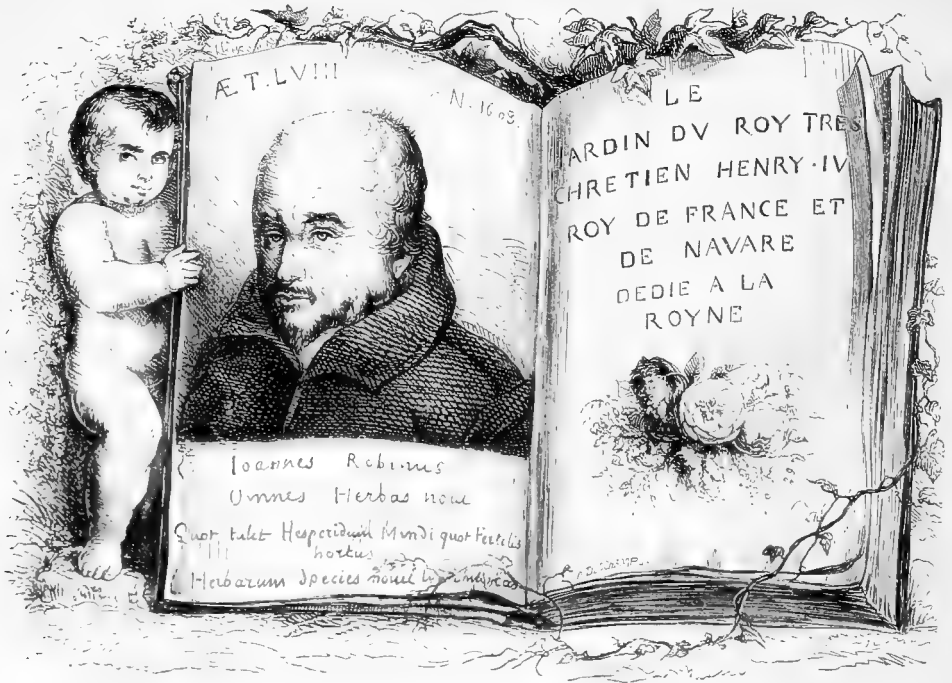 ÆT. LVIII
N. 1608.
Ioannes Robinus
Omnes Herbas noui
Quot tulit Hesperidum Mundi quot fertilis
hortus
Herbarum Species nouit
LE
JARDIN DV ROY TRES
CHRETIEN HENRY·IV
ROY DE FRANCE ET
DE NAVARE
DEDIE A LA
ROYNE